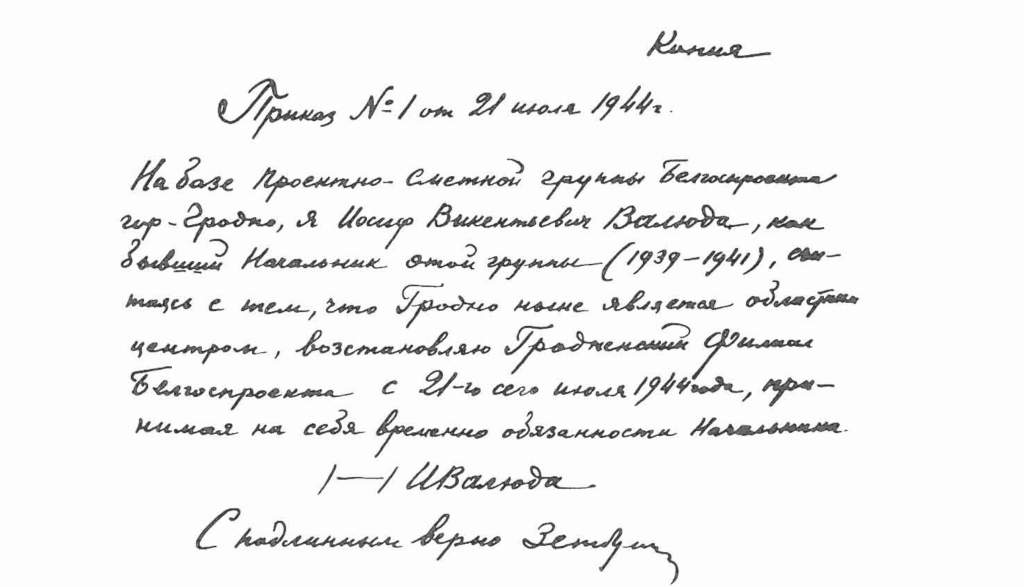 Копия
Приказ №1 от 21 июля 1944г.
На базе проектно-сметной группы Белгоспроекта
гор-Гродно, я Иосиф Викентьевич Валюда, как
бывший Начальник этой группы (1939-1941), счи-
таясь с тем, что Гродно ныне является областным
центром, возстановляю Гродненский Филиал
Белгоспроекта с 21-го сего июля 1944 года, при-
нимая на себя временно обязанности Начальника.
|—| ИВалюда
С подлинным верно